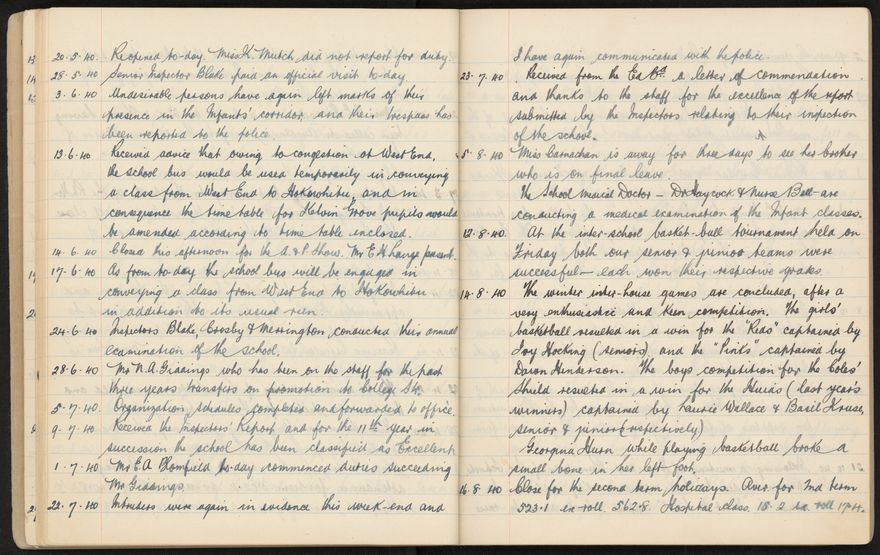 20.5.40 Reopened to-day. Miss K. Mutch did not report for duty.
28.5.40 Senior Inspector Blake paid an official visit to-day.
3.6.40 Undesirable persons have again left marks of their
presence in the Infants' corridor and their trespass has
been reported to the police.
13.6.40 Received advice that owing to congestion at West End,
the school bus would be used temporarily in conveying
a class from West End to Hokowhitu, and in
consequence the time table for Kelvin Grove pupils would
be amended according to time table inclosed.
14.6.40 Closed this afternoon for the A & P Show. Mr E H Lange present.
17.6.40 As from to-day the school bus will be engaged in
conveying a class from West End to Hokowhitu
in addition to its usual run.
24.6.40 Inspectors Blake, Crosby & Merrington, conducted their annual
examination of the school.
28.6.40 Mr N.A. Giddings who has been on the staff for the past
three years transfers on promotion to College St.
5.7.40. Organization, schedules completed and forwarded to office.
9.7.40 Received the Inspectors' Report and for the 11th year in
succession the school has been classified as Excellent.
1.7.40 Mr E A Blomfield to-day commenced duties succeeding
Mr Giddings.
22.7.40 Intruders were again in evidence this week-end and
I have again communicated with the police.
23.7.40 Received from the Ed Bd a letter of commendation
and thanks to the staff for the excellence of the report
submitted by the Inspectors relating to their inspection
of the school.
5.8.40 Miss Carnachan is away for three days to see her brother
who is on final leave.
The School Medical Doctor - Dr Haycock & Nurse Bell are
conducting a medical examination of the Infant classes.
12.8.40. At the inter-school basket-ball tournament held on
Friday both our senior & junior teams were
successful - each won their respective grades.
14.8.40 The winter inter-house games are concluded, after a
very enthusiastic and keen competition. The girls'
basketball resulted in a win for the "Reds" captained by
Ivy Hocking (seniors) and the "Pinks" captained by
Dawn Henderson. The boys competition for the Coles'
Shield resulted in a win for the Huias (last year's
winners) captained by Laurie Wallace & Basil Kruse,
senior & junior (respectively)
Georgina Hurn while playing basketball broke a
small bone in her left foot.
16.8.40 Close for the second term holidays. Aver. for 2nd term
523.1 ex roll. 562.8. Hospital class. 15.2 ex roll 17.4.